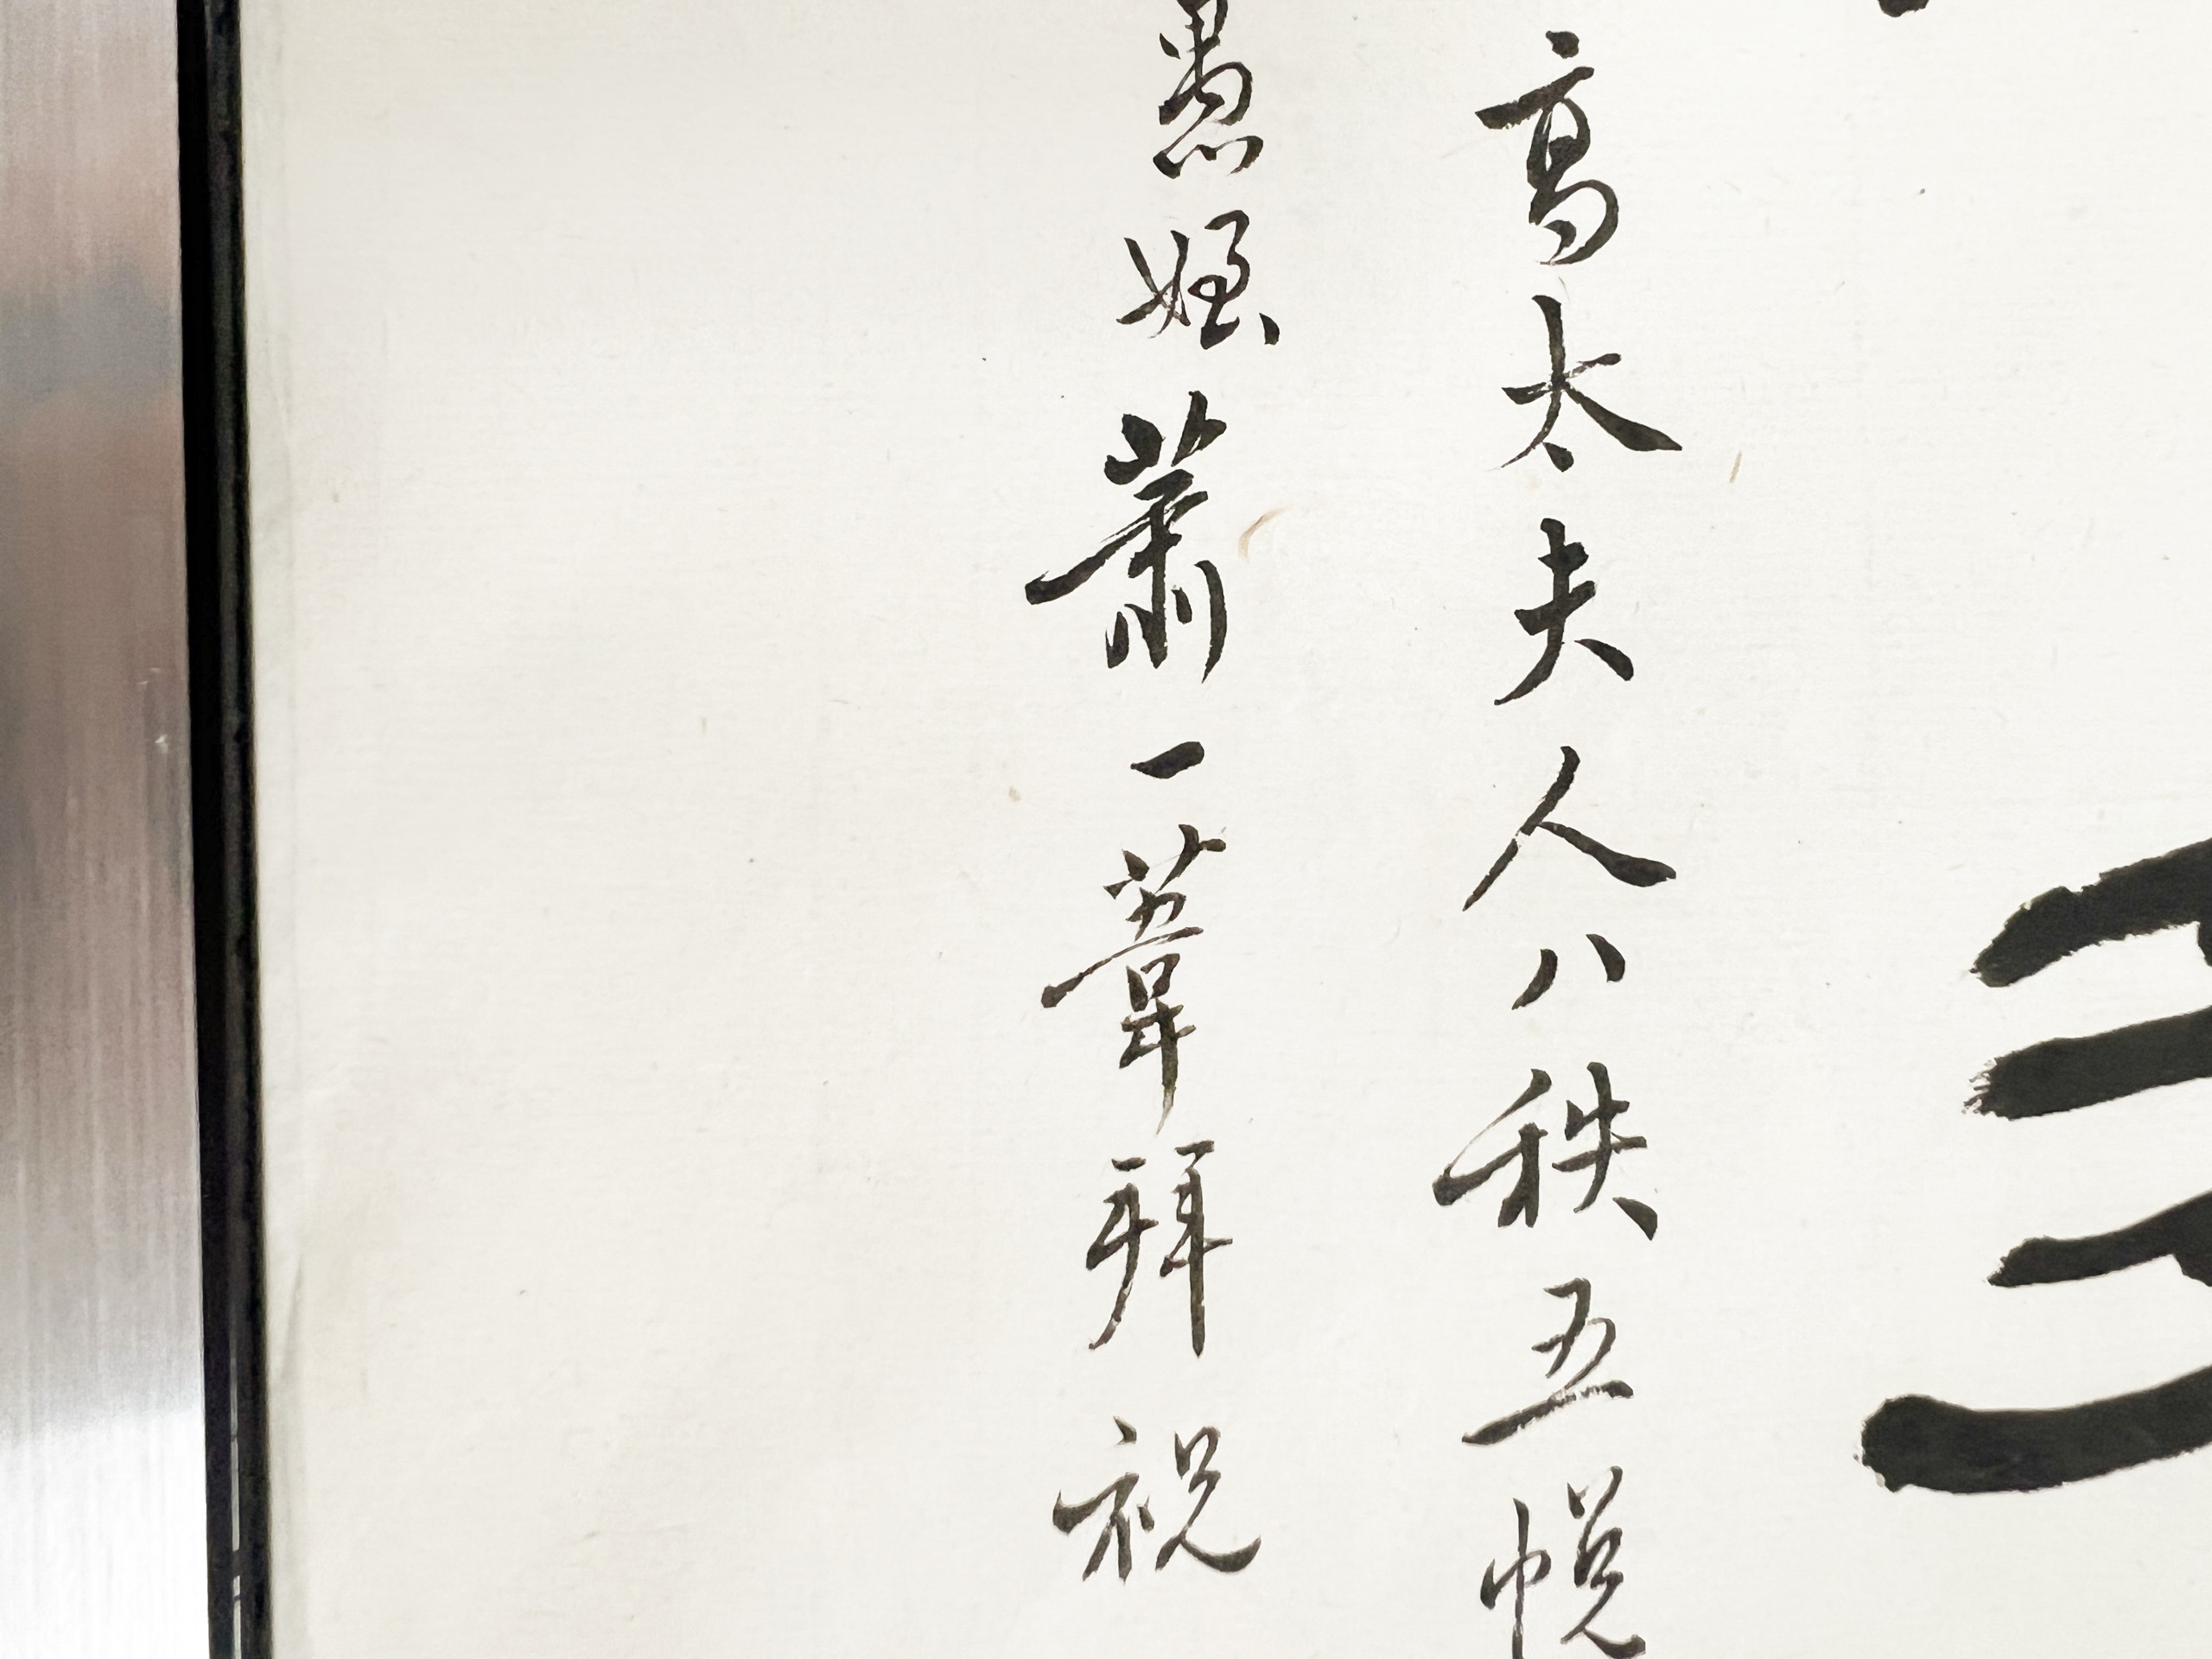 高太夫人八秩五帨
愚姪蕭一葦拜祝